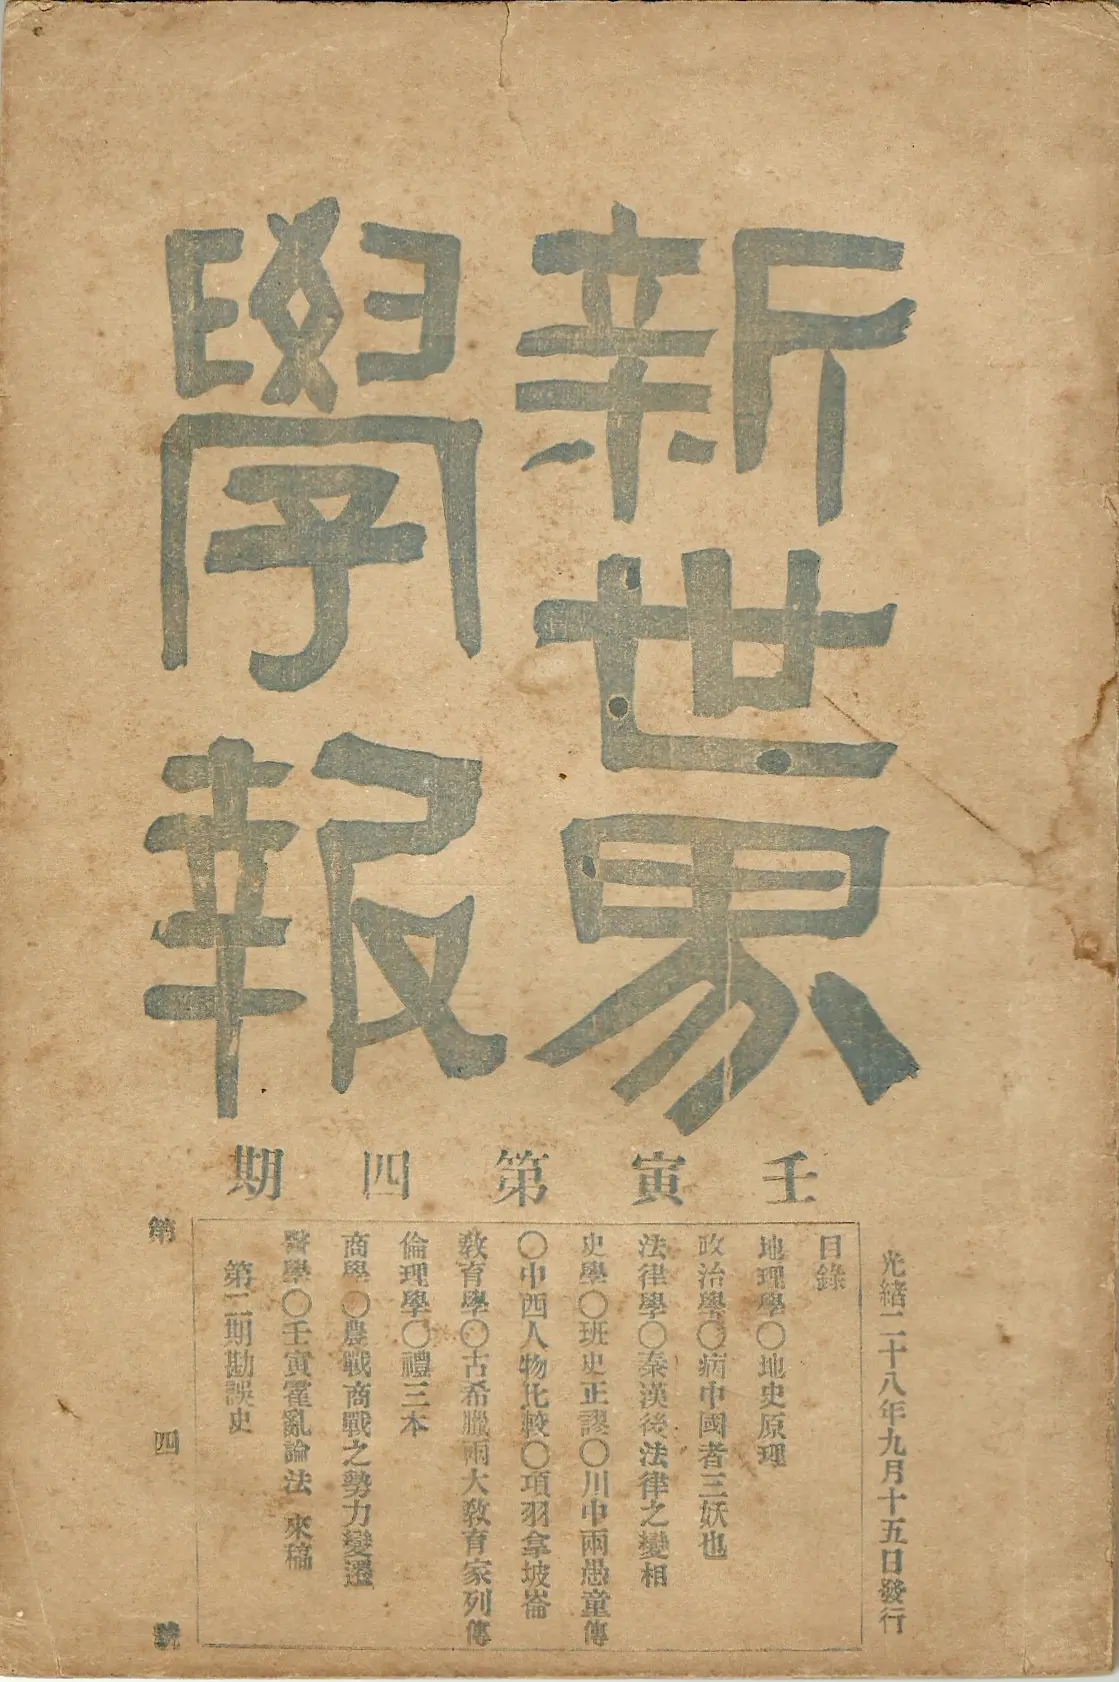 新世界
學報
壬寅第四期
光緒二十八年九月十五日發行
目錄
地理學〇地史原理
政治學〇病中國者三妖也
法律學〇秦漢後法律之變相
史學〇班史正謬〇川中兩愚童傳
〇中西人物比較〇項羽拿坡崙
教育學〇古希臘兩大教育家列傳
倫理學〇禮三本
商學〇農戰商戰之勢力變遷
醫學〇壬寅霍亂論法 來稿
第二期勘誤史
第四號